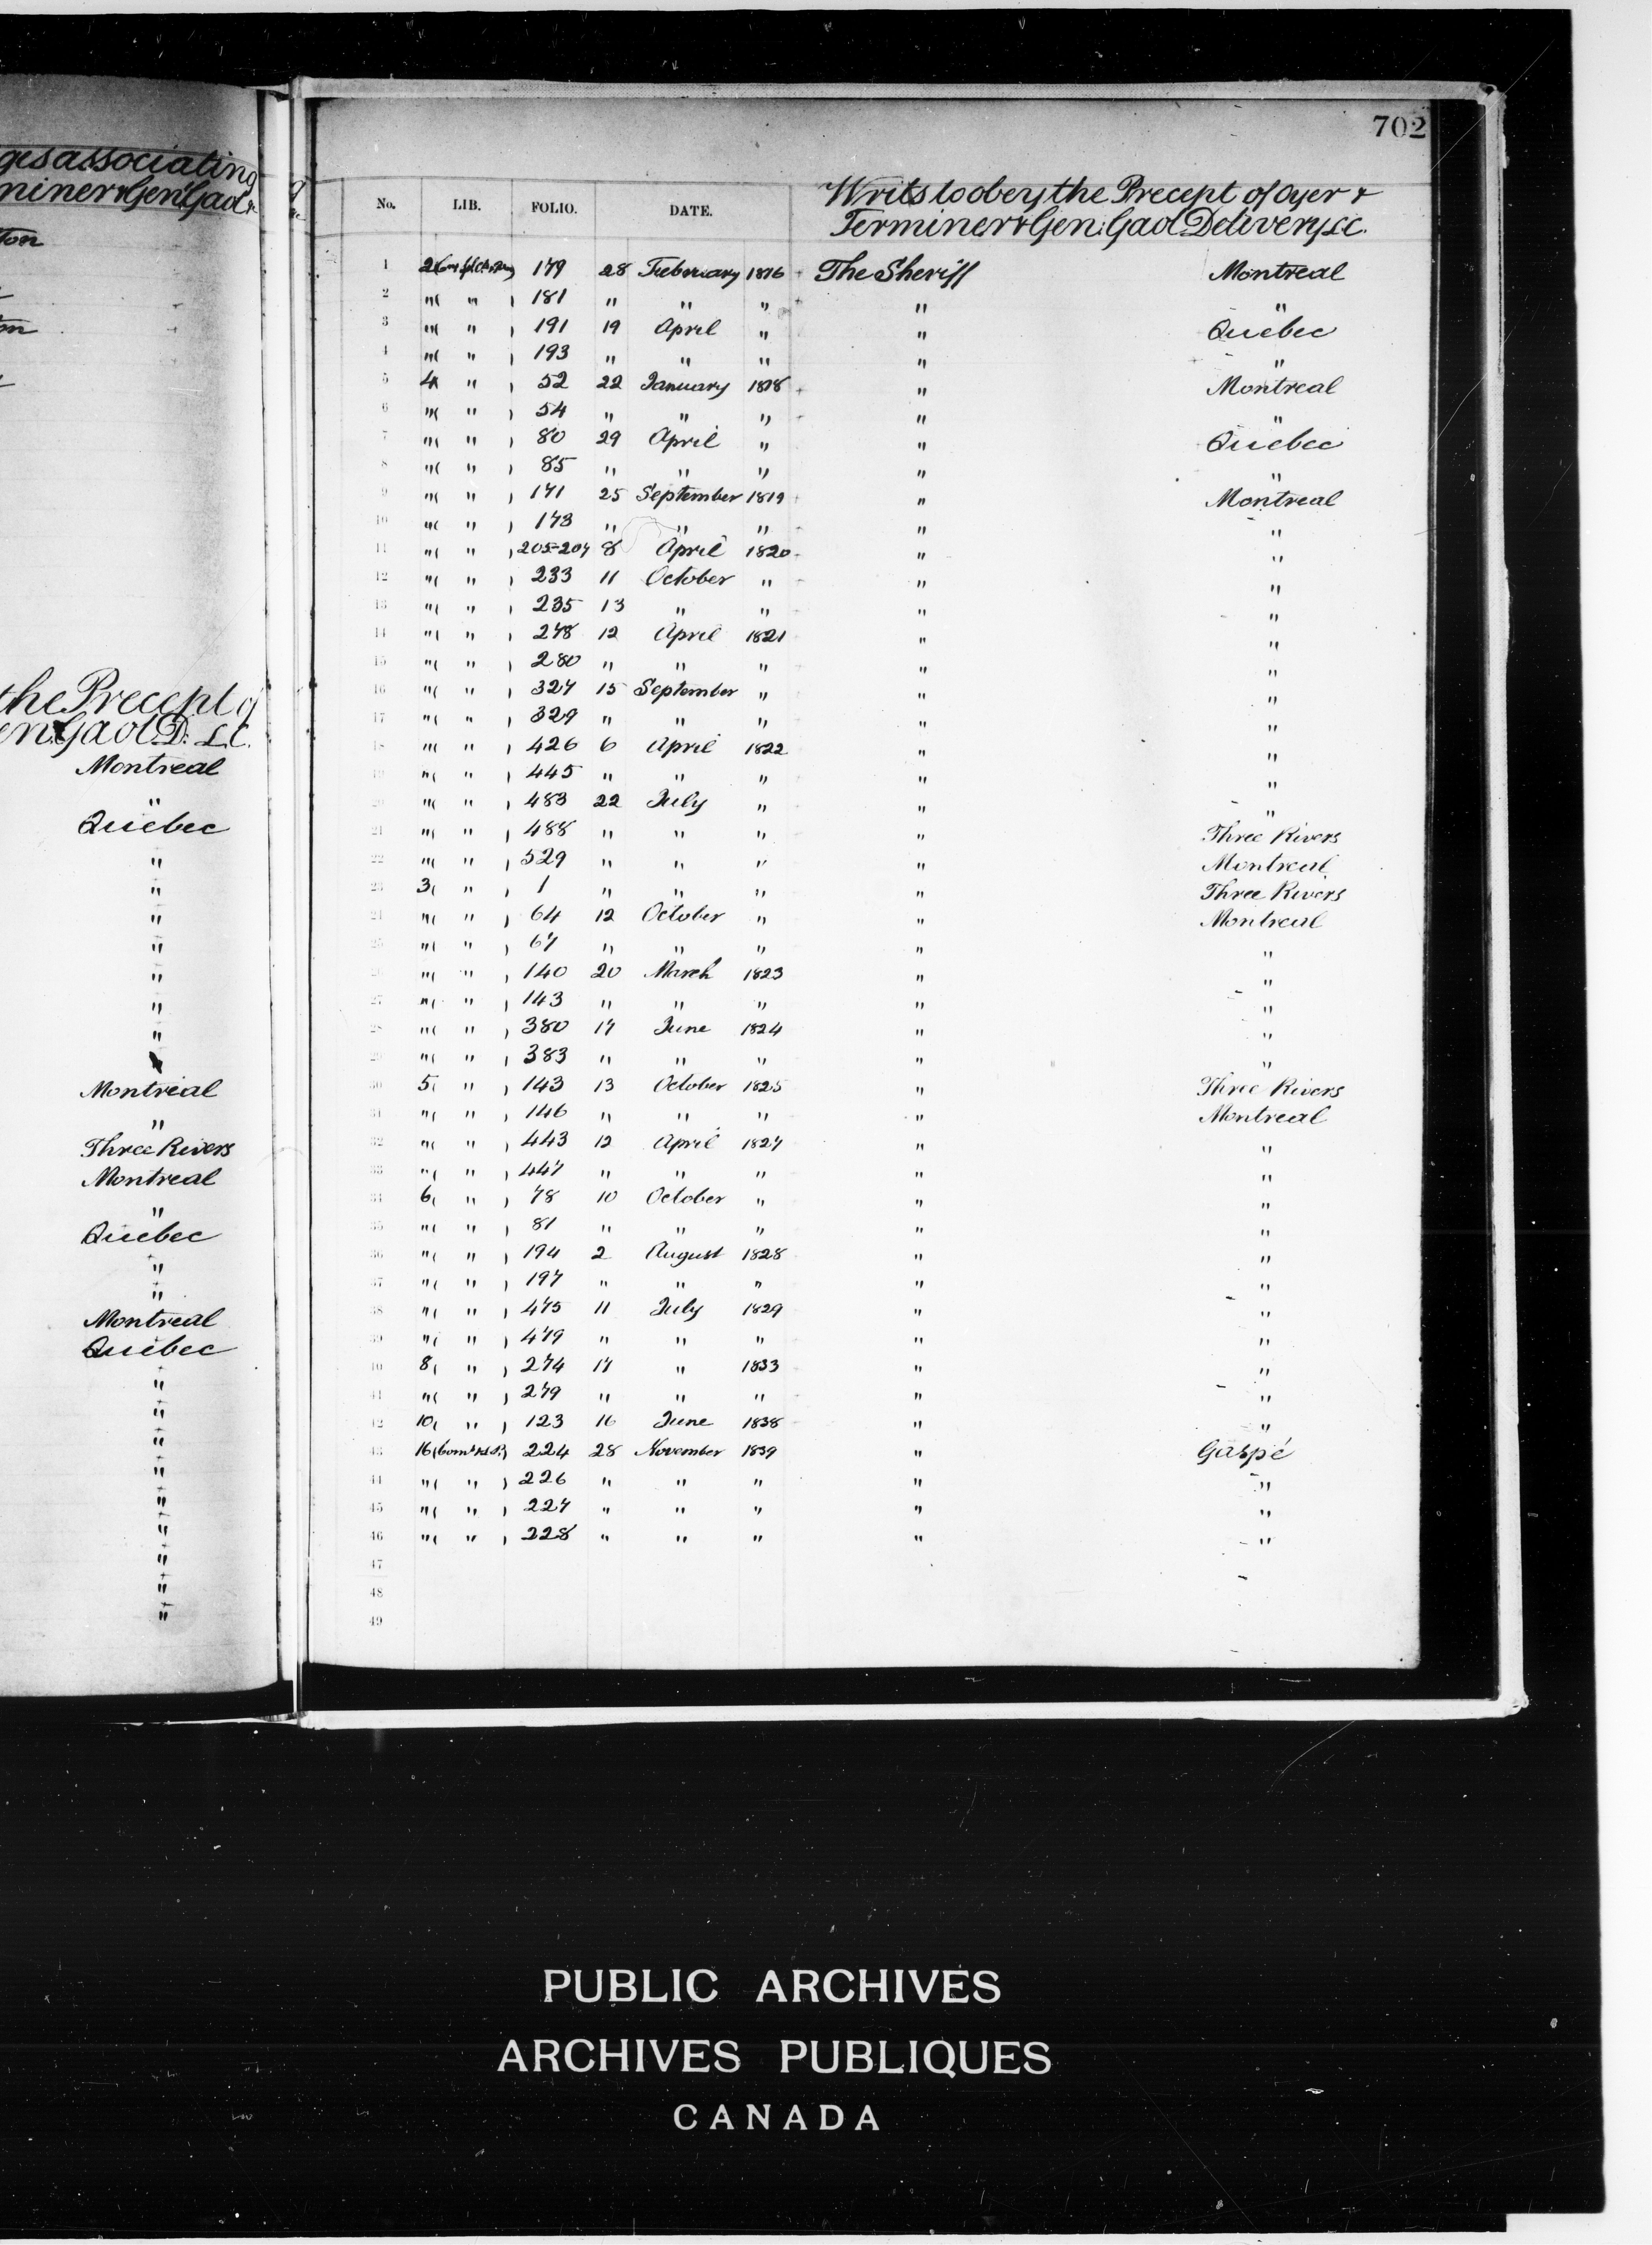 ges associating
miner & Gen¹ Gaol &
ton
the Precept of
en. Gaol D: L.C.
Montreal
"
Quebec
"
"
"
"
"
"
"
Montreal
"
Three Rivers
Montreal
"
Quebec
"
"
Montreal
Quebec
"
"
"
"
"
"
"
"
"
702
No. LIB. FOLIO. DATE. Writs to obey the Precept of Oyer &
Terminer & Gen: Gaol Delivery L.C.
1 2 179 28 February 1816 The Sheriff Montreal
2 "( " ) 181 " " " " "
3 "( " ) 191 19 April " " Quebec
4 "( " ) 193 " " " " "
5 4( " ) 52 22 January 1818 " Montreal
6 "( " ) 54 " " " " "
7 "( " ) 80 29 April " " Quebec
8 "( " ) 85 " " " " "
9 "( " ) 171 25 September 1819 " Montreal
10 "( " ) 173 " " " " "
11 "( " ) 205-207 8 April 1820 " "
12 "( " ) 233 11 October " " "
13 "( " ) 235 13 " " " "
14 "( " ) 278 12 April 1821 " "
15 "( " ) 280 " " " " "
16 "( " ) 327 15 September " " "
17 "( " ) 329 " " " " "
18 "( " ) 426 6 April 1822 " "
19 "( " ) 445 " " " " "
20 "( " ) 483 22 July " " "
21 "( " ) 488 " " " " Three Rivers
22 "( " ) 529 " " " " Montreal
23 3( " ) 1 " " " " Three Rivers
24 "( " ) 64 12 October " " Montreal
25 "( " ) 67 " " " " "
26 "( " ) 140 20 March 1823 " "
27 "( " ) 143 " " " " "
28 "( " ) 380 17 June 1824 " "
29 "( " ) 383 " " " " "
30 5( " ) 143 13 October 1825 " Three Rivers
31 "( " ) 146 " " " " Montreal
32 "( " ) 443 12 April 1827 " "
33 "( " ) 447 " " " " "
34 6( " ) 78 10 October " " "
35 "( " ) 81 " " " " "
36 "( " ) 194 2 August 1828 " "
37 "( " ) 197 " " " " "
38 "( " ) 475 11 July 1829 " "
39 "( " ) 479 " " " " "
40 8( " ) 274 17 " 1833 " "
41 "( " ) 279 " " " " "
42 10( " ) 123 16 June 1838 " "
43 16 224 28 November 1839 " Gaspé
44 "( " ) 226 " " " " "
45 "( " ) 227 " " " " "
46 "( " ) 228 " " " " "
47
48
49
PUBLIC ARCHIVES
ARCHIVES PUBLIQUES
CANADA